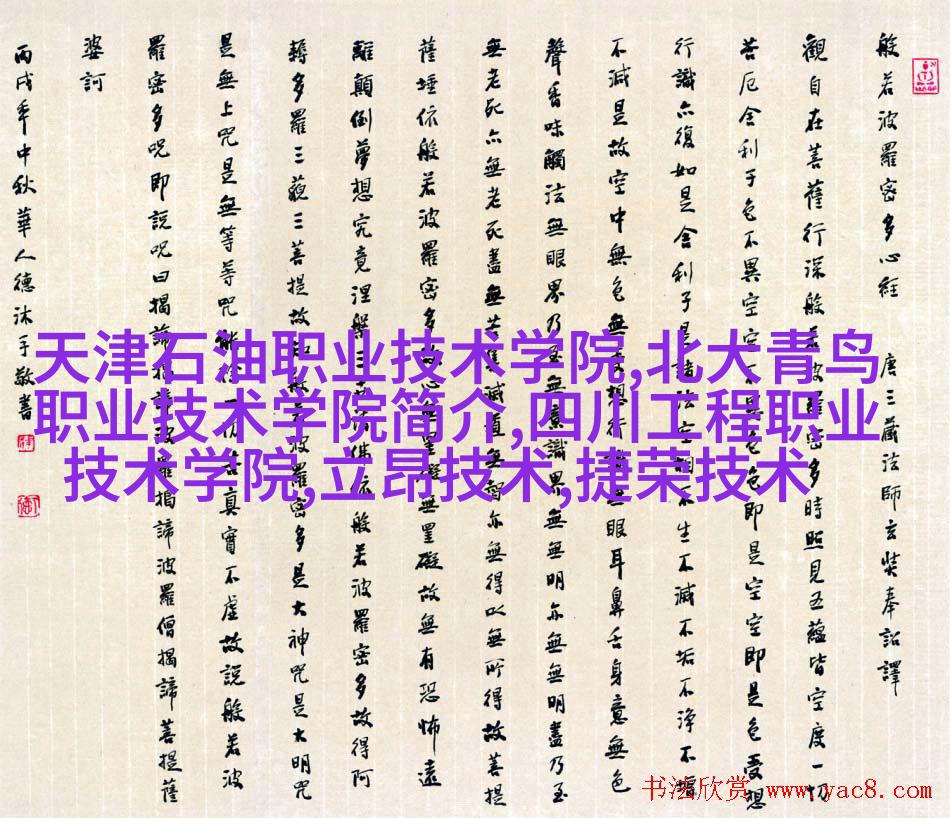 天津石油职业技术学院,北大青鸟
职业技术学院简介,四川工程职业
技术学院,立昂技术,捷荣技术
般若波羅密多心經 唐三藏法師玄奘奉詔譯
觀自在菩薩行深般若波羅密多時照見五蘊皆空度一切
苦厄舍利子色不異空空不異色色即是空空即是色受想
行識亦復如是舍利子是諸法空相不生不滅不垢不淨不增
不減是故空中無色無受想行識無眼耳鼻舌身意無色
聲香味觸法無眼界乃至無意識界無無明亦無無明盡乃至
無老死亦無老死盡無苦集滅道無智亦無得以無所得故菩提
薩埵依般若波羅密多故心無罣礙無罣礙故無有恐怖遠
離顛倒夢想究竟涅槃三世諸佛依般若波羅密多故得阿
耨多羅三藐三菩提故知般若波羅密多是大神咒是大明咒
是無上咒是無等等咒能除一切苦真實不虛故說般若波
羅密多咒即說咒曰揭諦揭諦波羅揭諦波羅僧揭諦菩提薩
婆訶
丙戌年中秋華人德沐手敬書
书法欣赏 www.yac8.com